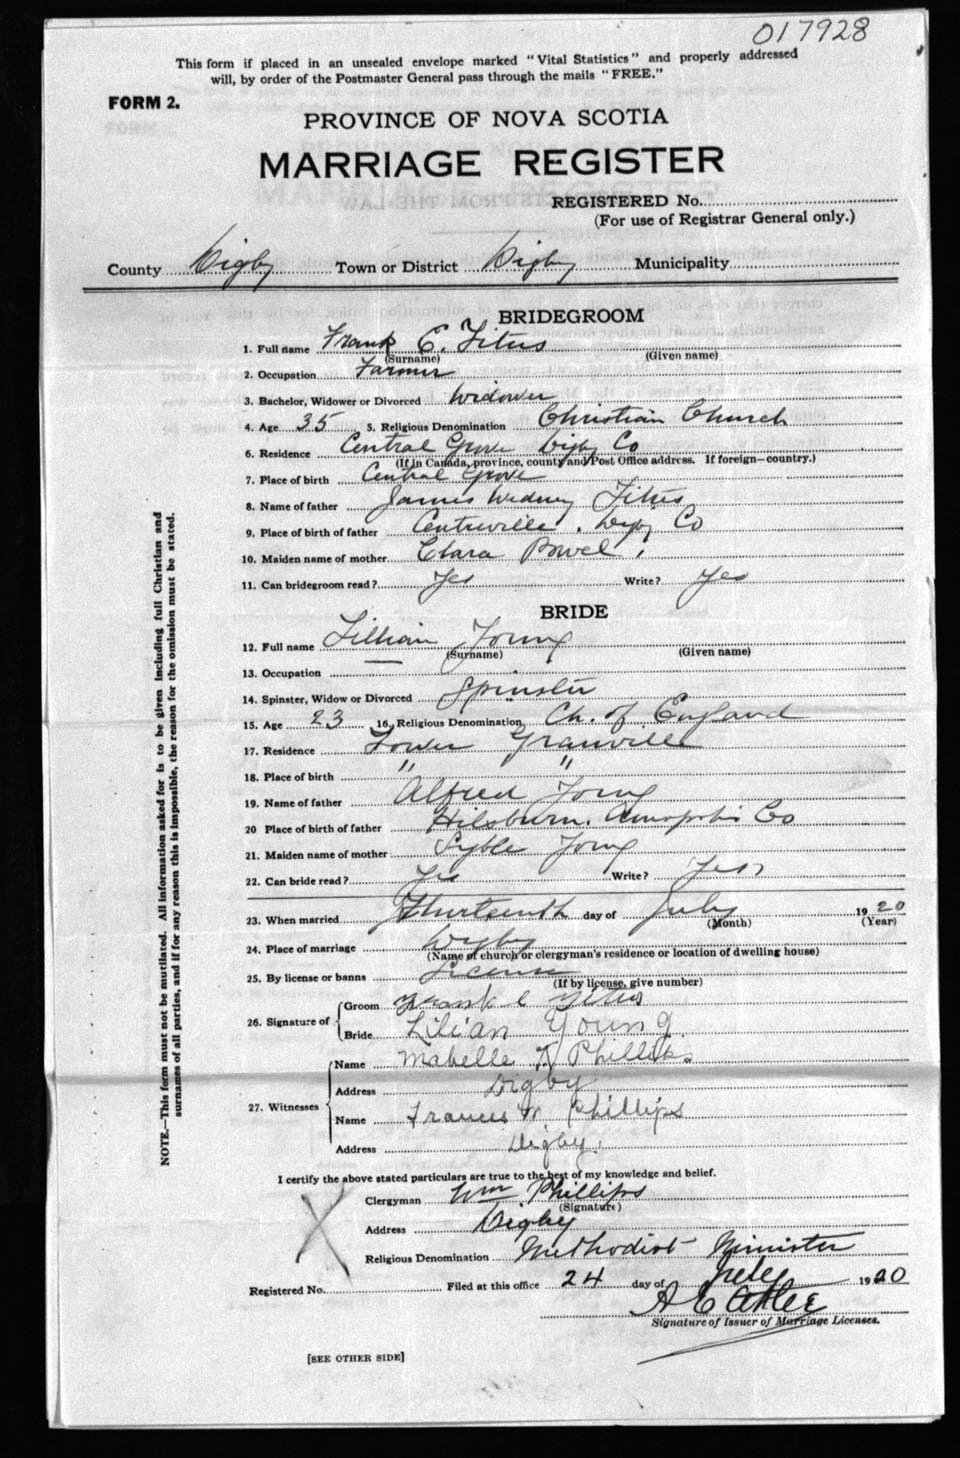 017928
This form if placed in an unsealed envelope marked "Vital Statistics" and properly addressed
will, by order of the Postmaster General pass through the mails "FREE."
FORM 2.
PROVINCE OF NOVA SCOTIA
MARRIAGE REGISTER
REGISTERED No.
(For use of Registrar General only.)
County Digby Town or District Digby Municipality
BRIDEGROOM
1. Full name Frank C. Titus
(Surname) (Given name)
2. Occupation Farmer
3. Bachelor, Widower or Divorced Widower
4. Age 35 5. Religious Denomination Christian Church
6. Residence Central Grove Digby Co
(If in Canada, province, county and Post Office address. If foreign—country.)
7. Place of birth Central Grove
8. Name of father James Titus
9. Place of birth of father Centreville, Digby Co
10. Maiden name of mother Clara Powel
11. Can bridegroom read? Yes Write? Yes
BRIDE
12. Full name Lillian Young
(Surname) (Given name)
13. Occupation —
14. Spinster, Widow or Divorced Spinster
15. Age 23 16. Religious Denomination Ch. of England
17. Residence Lower Granville
18. Place of birth " "
19. Name of father Alfred Young
20 Place of birth of father Hilsburn, Annapolis Co
21. Maiden name of mother Syble Young
22. Can bride read? Yes Write? Yes
23. When married Thirteenth day of July 1920
(Month) (Year)
24. Place of marriage Digby
(Name of church or clergyman's residence or location of dwelling house)
25. By license or banns License
(If by license, give number)
26. Signature of Groom Frank C Titus
Bride Lilian Young
27. Witnesses Name Mabelle Phillips
Address Digby
Name Frances W Phillips
Address Digby.
I certify the above stated particulars are true to the best of my knowledge and belief.
Clergyman Wm Phillips
(Signature)
Address Digby
Religious Denomination Methodist Minister
Registered No. Filed at this office 24 day of July 1920
Signature of Issuer of Marriage Licenses.
[SEE OTHER SIDE]
NOTE.—This form must not be mutilated. All information asked for is to be given including full Christian and
surnames of all parties, and if for any reason this is impossible, the reason for the omission must be stated.